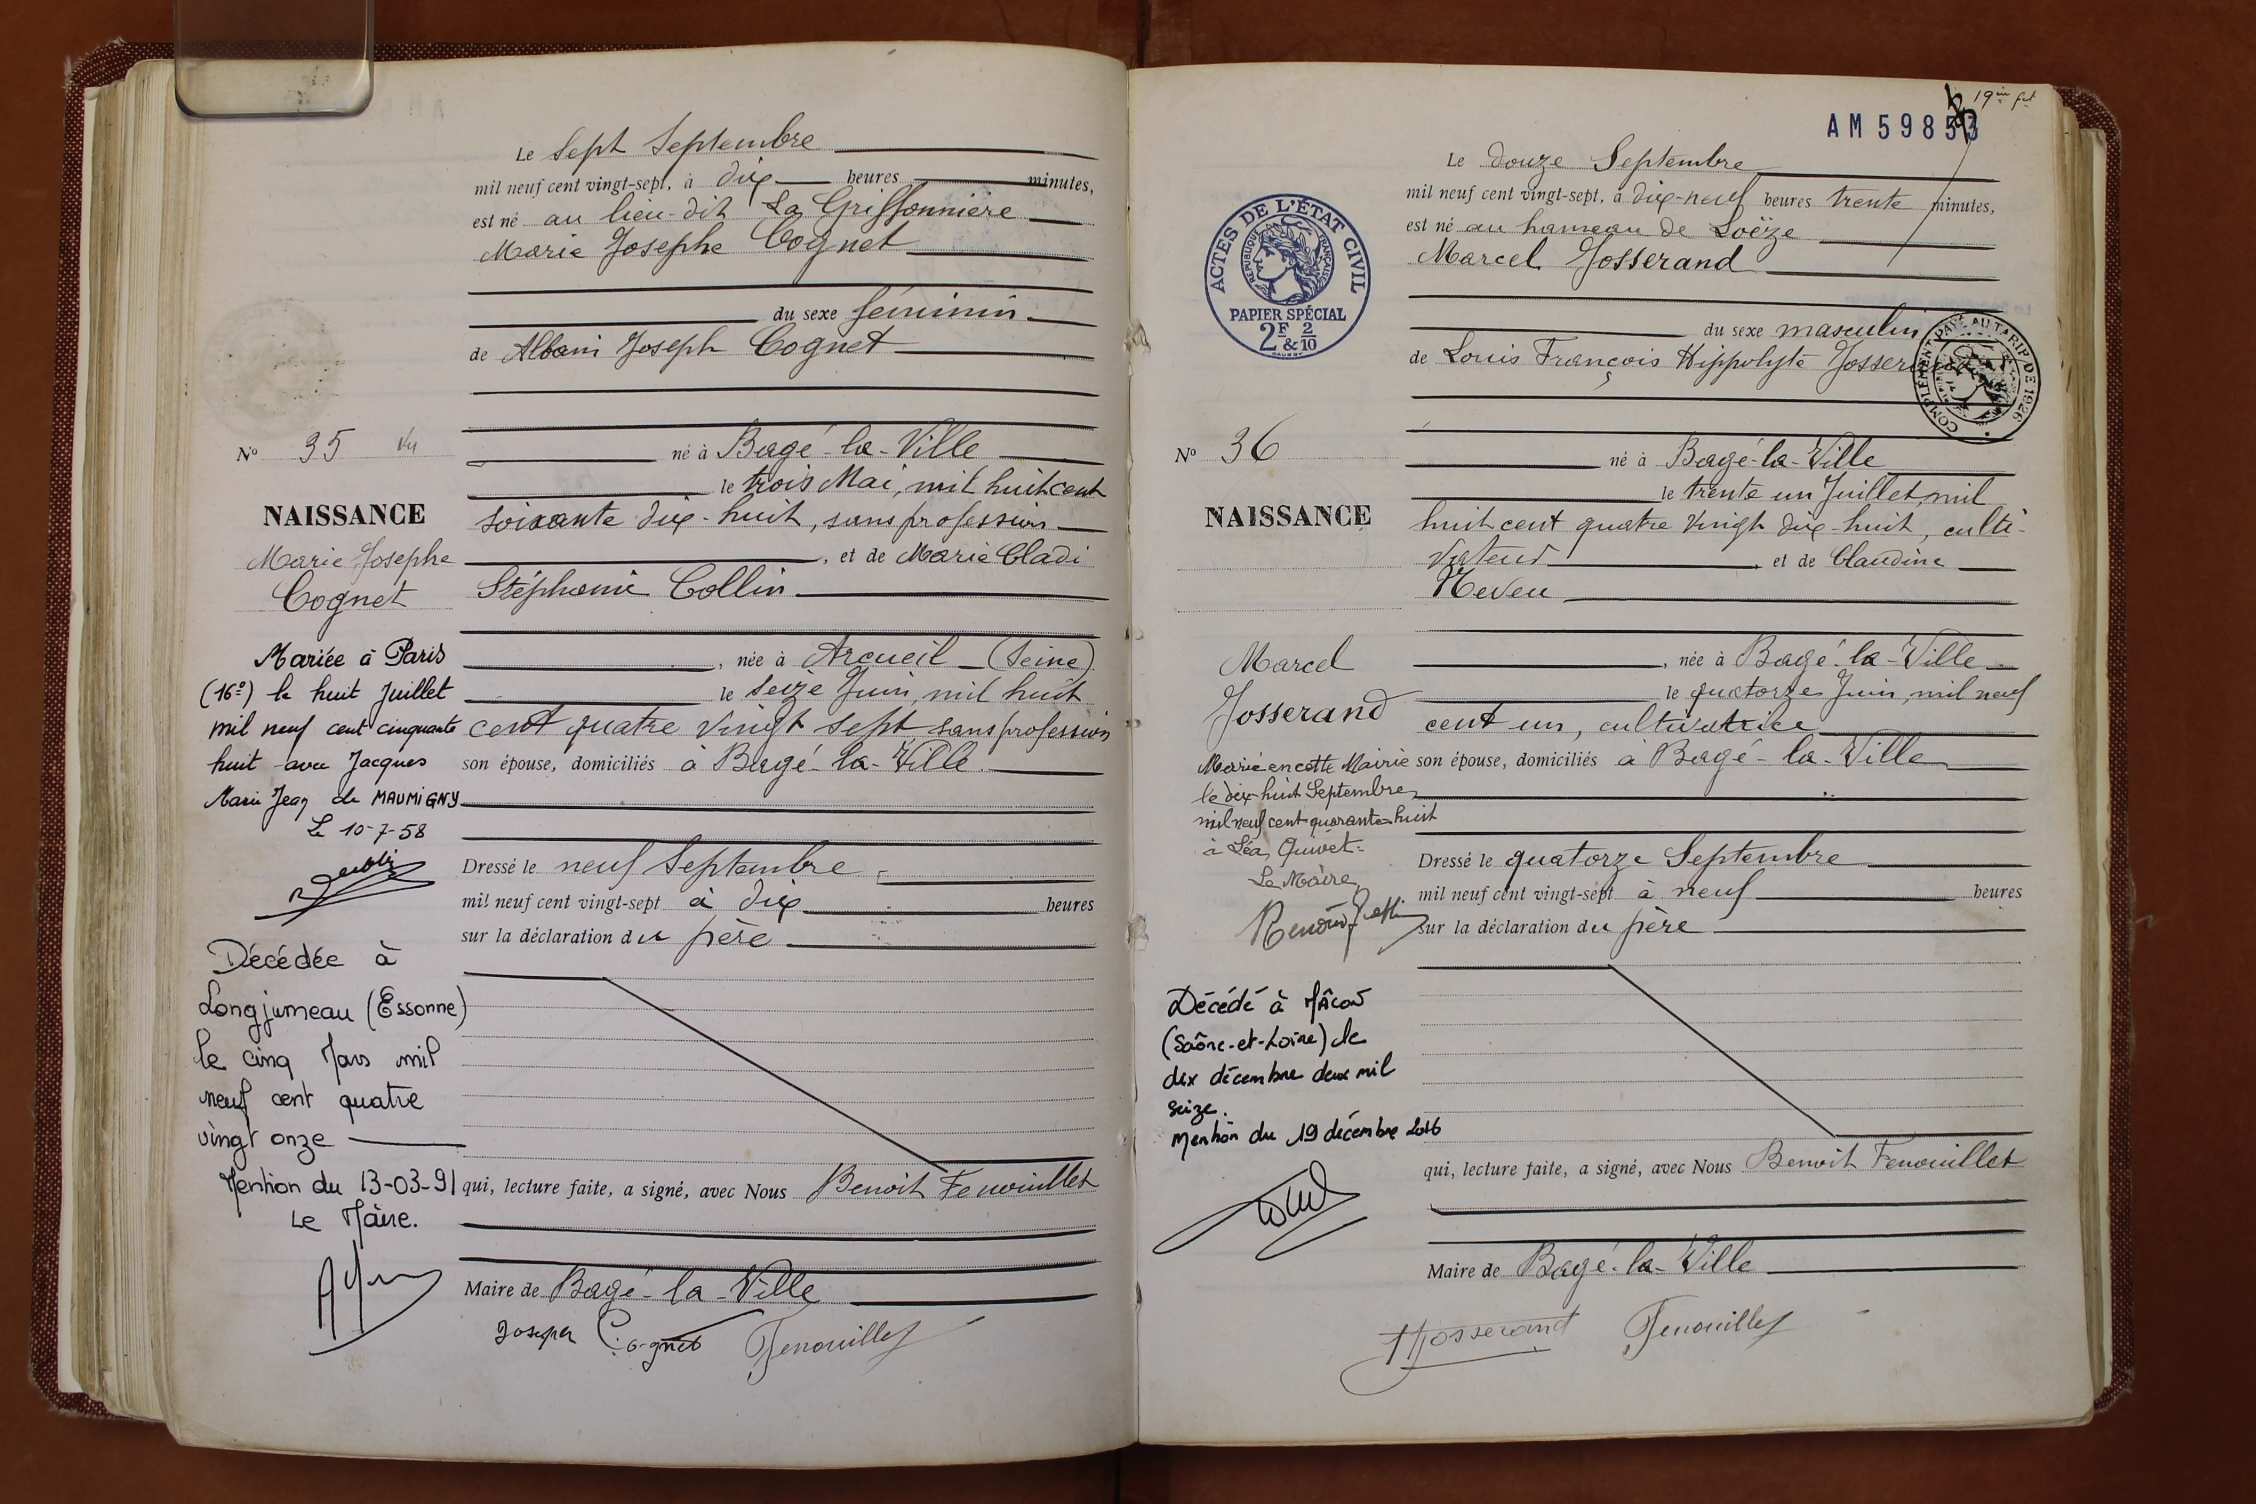 Le sept Septembre
mil neuf cent vingt-sept, à dix heures minutes,
est né au lieu-dit La Griffonnière
Marie Josephe Cognet
du sexe féminin
de Albani Joseph Cognet
né à Bagé-la-Ville
le trois Mai, mil huit cent
soixante dix-huit, sans profession
, et de Marie Cladi
Stéphanie Collin
, née à Arcueil (Seine)
le seize Juin, mil huit
cent quatre vingt sept sans profession
son épouse, domiciliés à Bagé-la-Ville
Dressé le neuf Septembre
mil neuf cent vingt-sept à dix heures
sur la déclaration du père
qui, lecture faite, a signé, avec Nous Benoit Fenouillet
Maire de Bagé-la-Ville
Joseph Cognet Fenouillet
N° 35 Vu
NAISSANCE
Marie Josephe
Cognet
Mariée à Paris
(16e) le huit Juillet
mil neuf cent cinquante
huit avec Jacques
Marie Jean de MAUMIGNY
Le 10-7-58
Décédée à
Longjumeau (Essonne)
le cinq Mars mil
neuf cent quatre
vingt onze
Mention du 13-03-91
Le Maire.
19
AM 59853
Le douze Septembre
mil neuf cent vingt-sept, à dix-neuf heures trente minutes,
est né au hameau de Loëze
Marcel Josserand
du sexe masculin
de Louis François Hippolyte Josserand
né à Bagé-la-Ville
le trente un Juillet, mil
huit cent quatre vingt dix-huit, culti-
vateur et de Claudine
Neveu
, née à Bagé-la-Ville
le quatorze Juin, mil neuf
cent un, cultivatrice
son épouse, domiciliés à Bagé-la-Ville
Dressé le quatorze Septembre
mil neuf cent vingt-sept à neuf heures
sur la déclaration du père
qui, lecture faite, a signé, avec Nous Benoit Fenouillet
Maire de Bagé-la-Ville
Josserand Fenouillet
ACTES DE L'ÉTAT CIVIL
RÉPUBLIQUE FRANÇAISE
PAPIER SPÉCIAL
2F & 2/10
COMPLÉMENT PAYÉ AU TARIF DE 1926
N° 36
NAISSANCE
Marcel
Josserand
Marié en cette Mairie
le dix-huit Septembre
mil neuf cent quarante-huit
à Léa Quivet
Le Maire
Décédé à Mâcon
(Saône-et-Loire) le
dix décembre deux mil
seize.
Mention du 19 décembre 2016